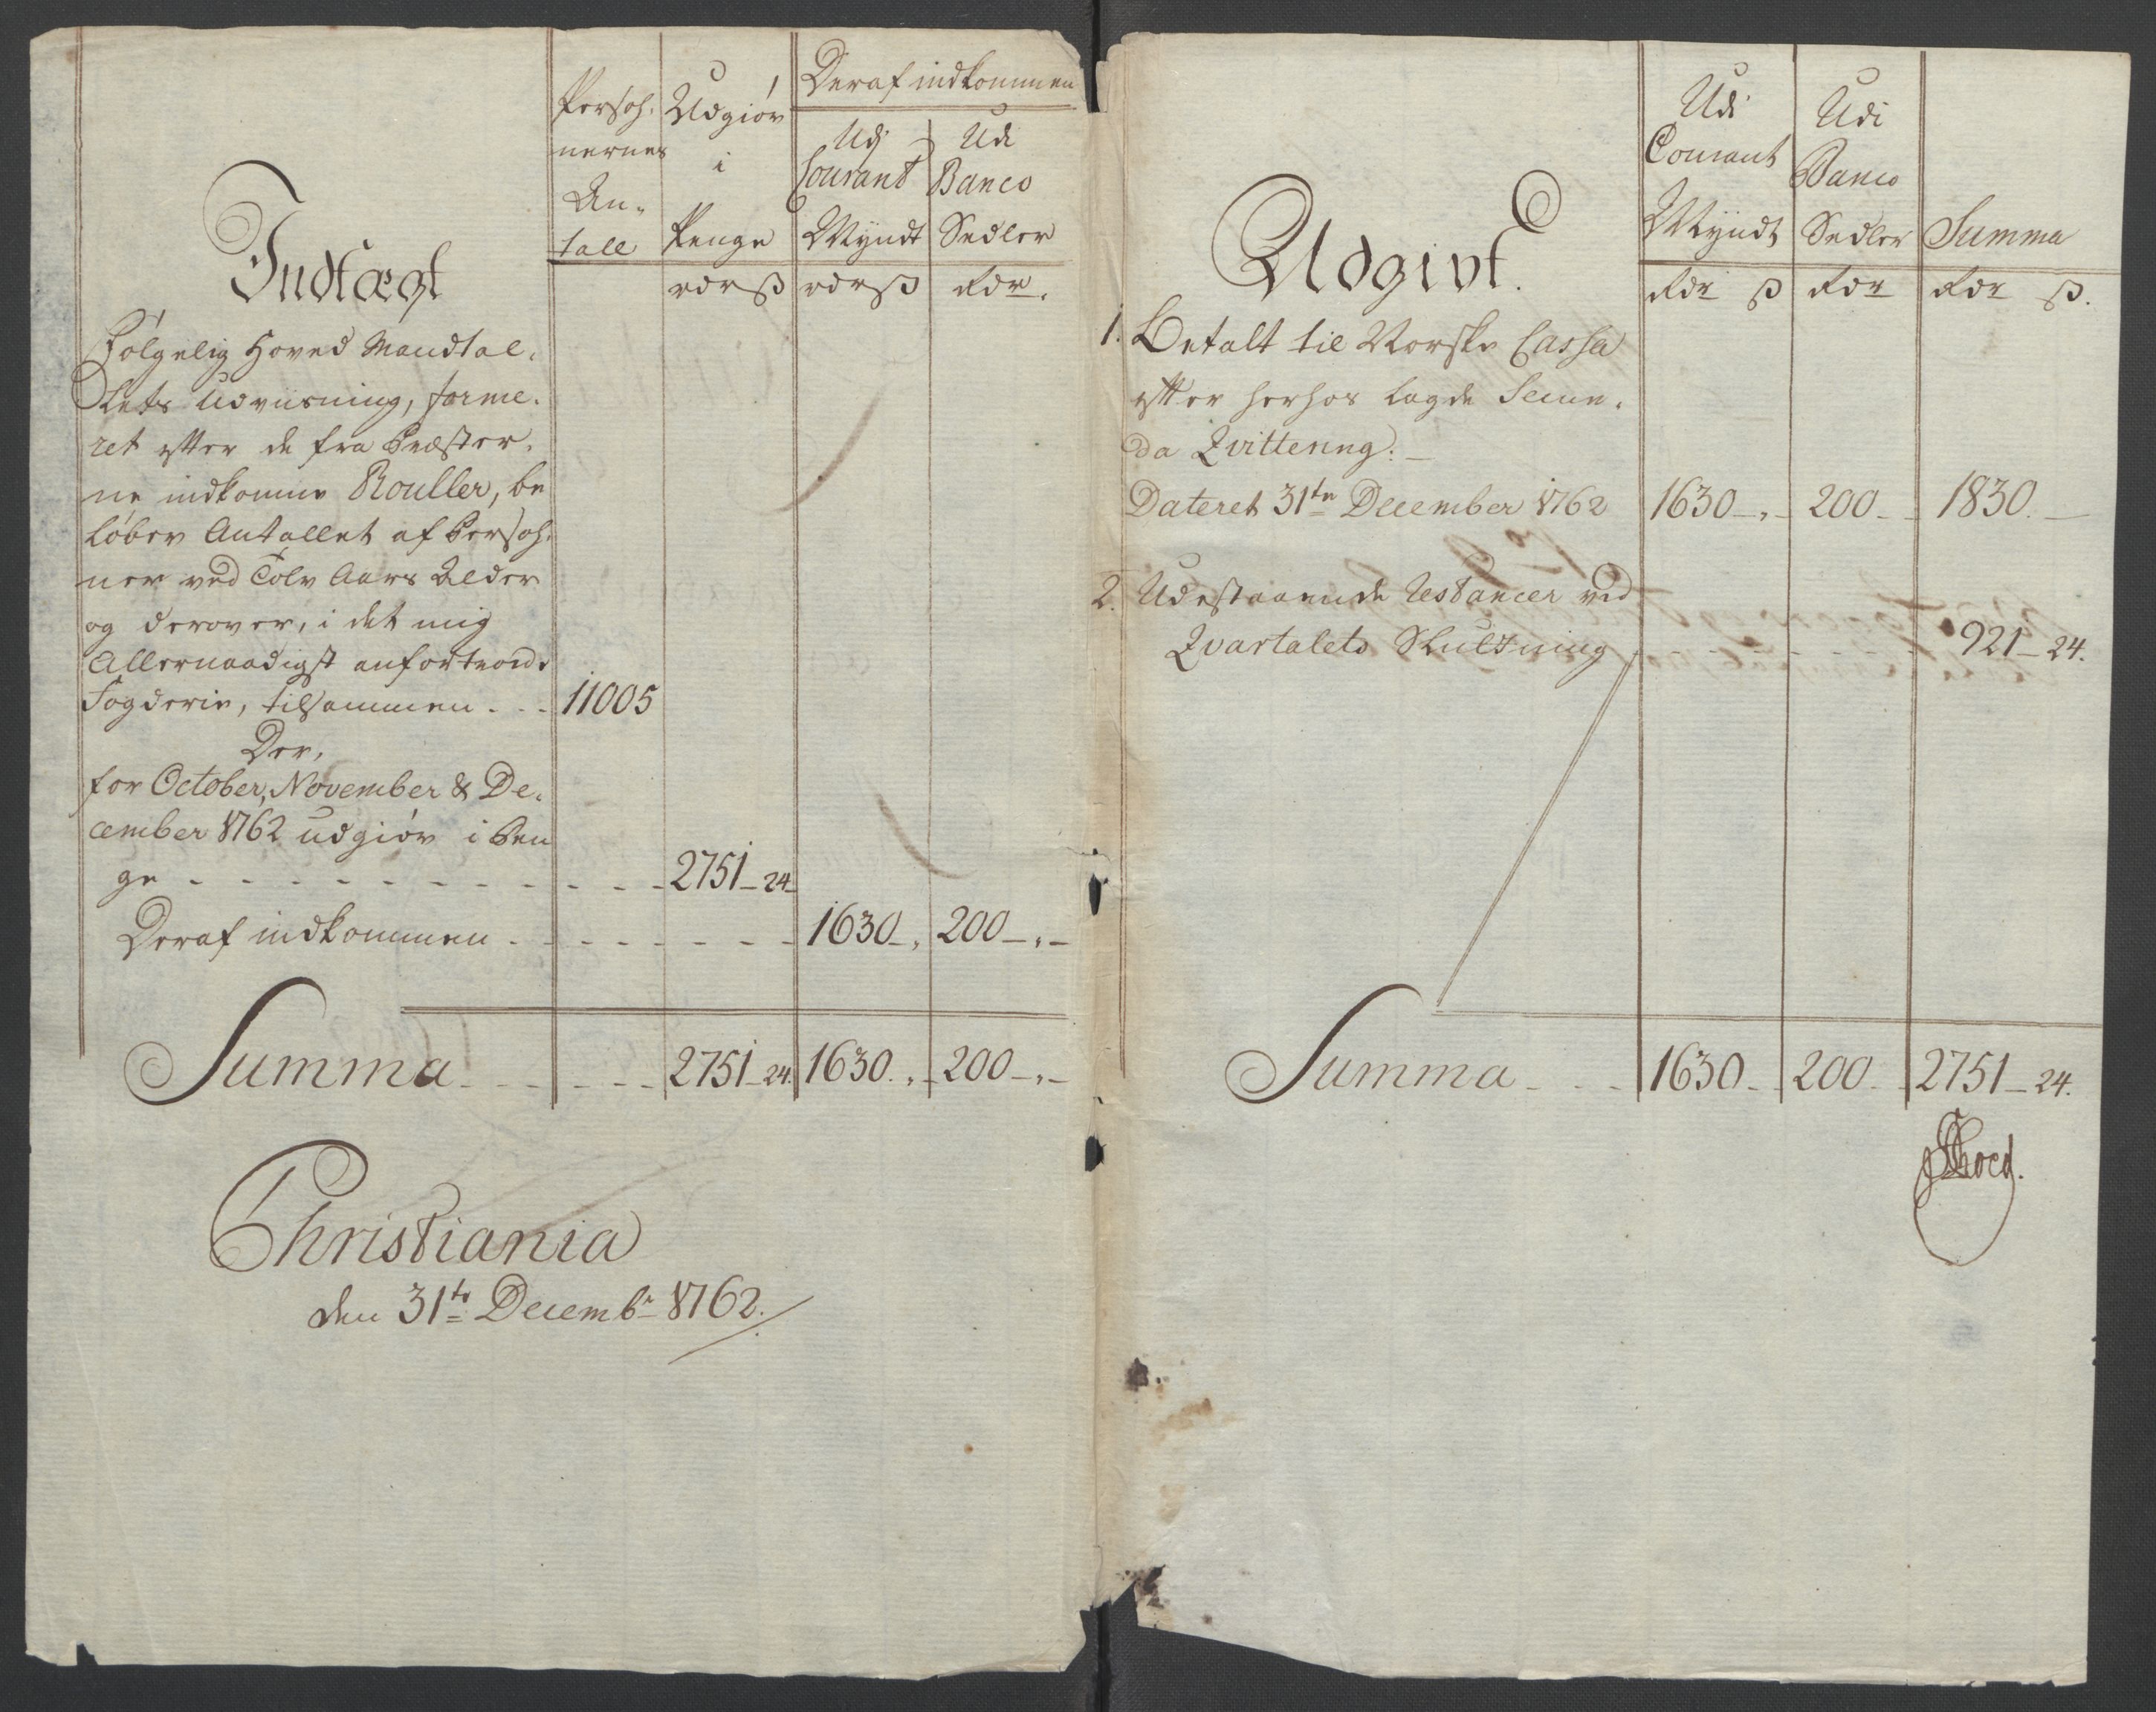 Persoh-
nernes
An-
tall
Udgiør
i
Penge
rdr ß
Deraf indkommen
Udi
Courant
Myndt
rdr ß
Udi
Banco
Sedler
Rdr.
Indtægt
Følgelig Hoved Mandtal-
lets Udviisning, forme-
ret efter de fra Præster-
ne indkomne Rouller, be
løber Antallet af Persoh-
ner ved Tolv Aars Alder
og derover, i det mig
Allernaadigst anfortroede
Fogderie, tilsammen - - - 11005
Der,
for October, November & De-
cember 1762 udgiør i Pen
ge - - - - - - 2751 - 24 -
Deraf indkommen - - - - - 1630 - , 200 - , -
Summa - - - - - 2751 - 24. 1630. , - 200 - , -
Christiania
den 31te Decembr 1762.
Udi
Courant
Myndt
Rdr ß
Udi
Banco
Sedler
Rdr
Summa
Rdr ß.
Udgivt.
1. Betalt til Norske Cassa
efter herhos lagde
da Qvittering: -
Dateret 31te December 1762 1630 - , - 200 - 1830. -
2. Udestaaende Restancer ved
Qvartalets Slutning - - - - - - 921 - 24.
Summa - - - 1630 - 200 - 2751 - 24.